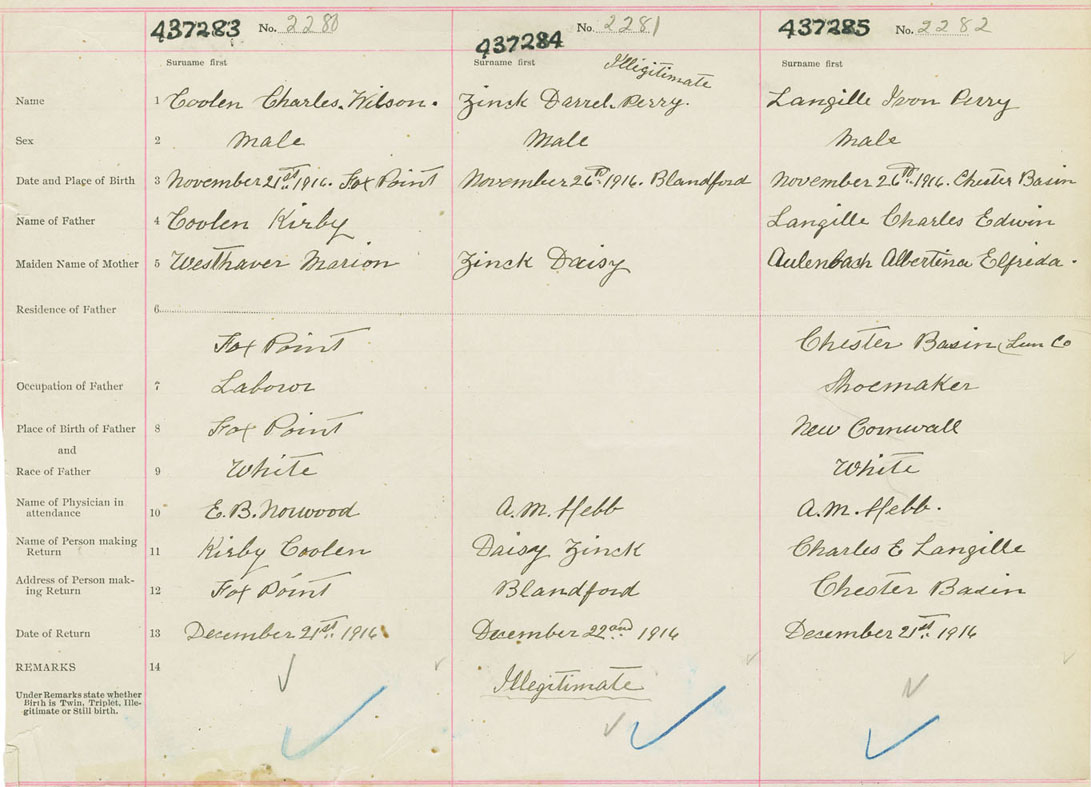 437283 No. 2280 437284 No. 2281 437285 No. 2282
Surname first Surname first Illigitimate Surname first
Name 1 Coolen Charles. Wilson. Zinck Darrel Perry. Langille Ivon Perry
Sex 2 Male Male Male
Date and Place of Birth 3 November 21st 1916. Fox Point November 26th 1916. Blandford November 26th 1916. Chester Basin
Name of Father 4 Coolen Kirby Langille Charles Edwin
Maiden Name of Mother 5 Westhaver Marion Zinck Daisy Aulenbach Albertina Elfreda.
Residence of Father 6
Fox Point Chester Basin (Lun Co
Occupation of Father 7 Labour Shoemaker
Place of Birth of Father 8 Fox Point New Cornwall
and
Race of Father 9 White White
Name of Physician in
attendance 10 E. B. Norwood A. M. Hebb A. M. Hebb.
Name of Person making
Return 11 Kirby Coolen Daisy Zinck Charles E Langille
Address of Person mak-
ing Return 12 Fox Point Blandford Chester Basin
Date of Return 13 December 21st 1916. December 22nd 1916 December 21st 1916
REMARKS 14 Illegitimate
Under Remarks state whether
Birth is Twin, Triplet, Ille-
gitimate or Still birth.